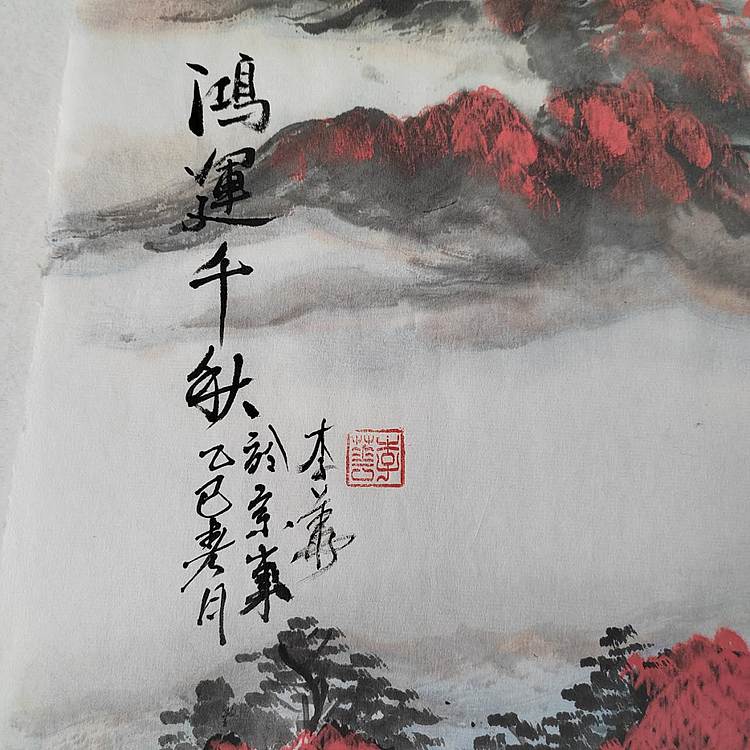 鴻運千秋
乙巳春月
於京華
李
李